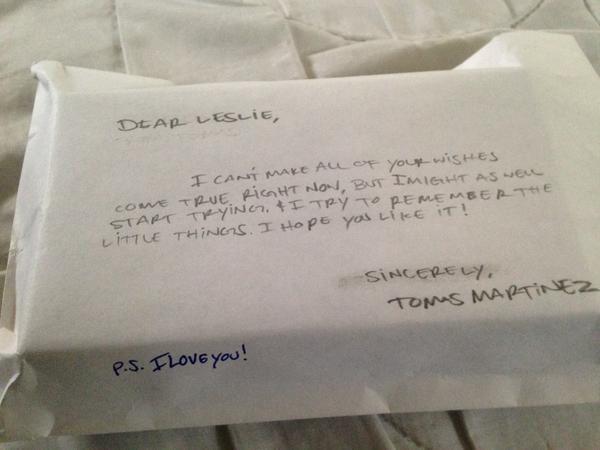 DEAR LESLIE,
I CAN'T MAKE ALL OF YOUR WISHES
COME TRUE RIGHT NOW, BUT I MIGHT AS WELL
START TRYING. & I TRY TO REMEMBER THE
LITTLE THINGS. I HOPE YOU LIKE IT!
SINCERELY,
TOMAS MARTINEZ
P.S. I LOVE YOU!